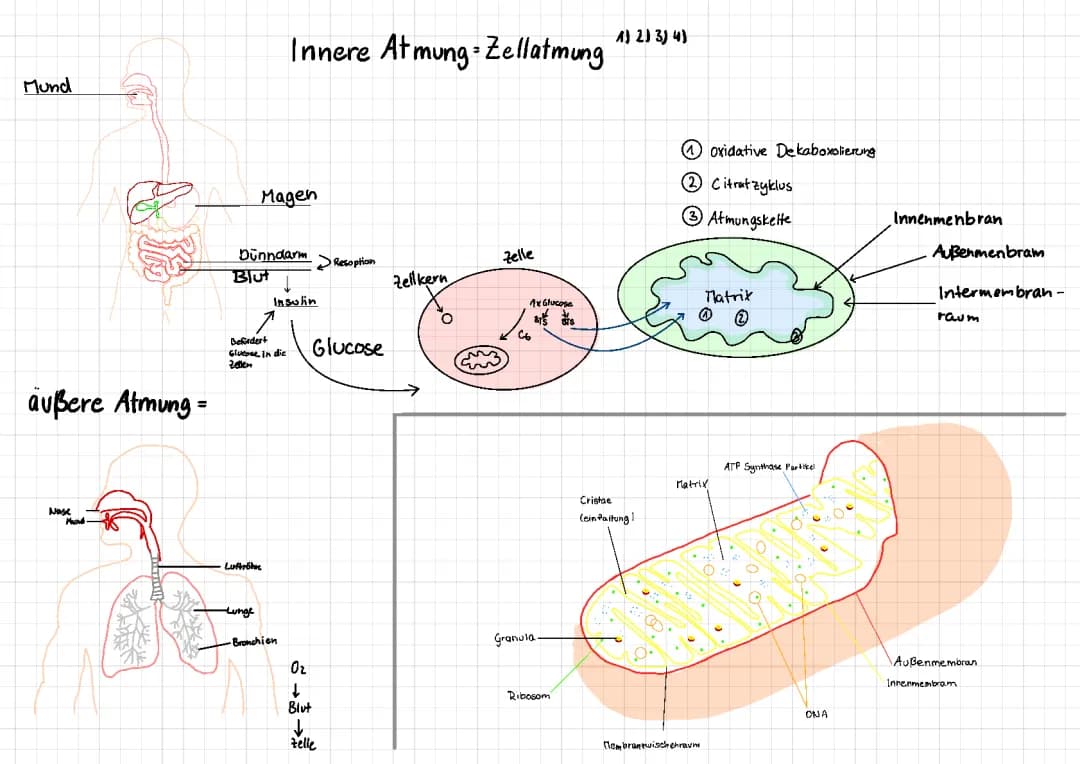 Innere Atmung = Zellatmung 1) 2) 3) 4)
Mund
Magen
Dünndarm
Blut
Resoption
Insulin
Befördert
Glucose in die
Zellen
Glucose
Zelle
Zellkern
1x Glucose
BTS
BTS
C6
① oxidative Dekaboxolierung
② Citratzyklus
③ Atmungskette
Innenmenbran
Außenmembram
Intermembran-
raum
Matrix
① ②
③
äußere Atmung =
Nase
Mund
Luftröhre
Lunge
Bronchien
O2
Blut
Zelle
ATP Synthase Partikel
Matrix
Cristae
(einfaltung)
Granula
Ribosom
Membranzwischenraum
DNA
Außenmembran
Innenmembram